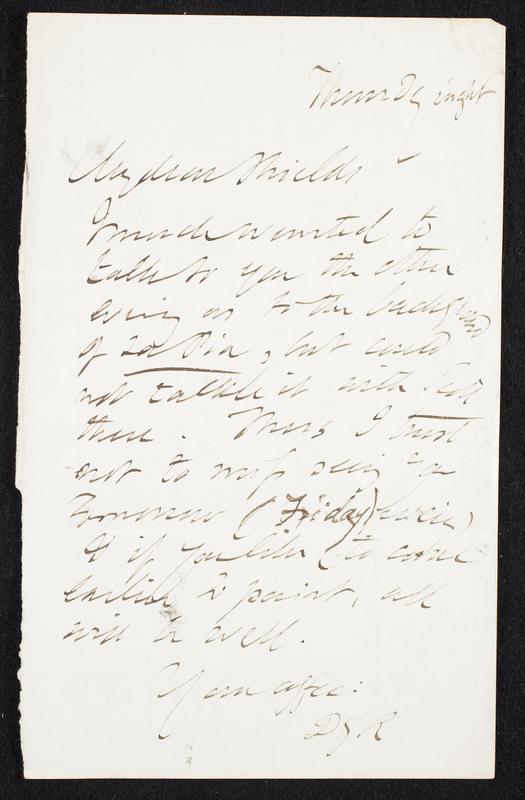 Thursdy night
My dear Shields
I much wanted to
talk to you the other
eveng as to the background
of La Pia, but could
not tackle it with Scott
there. Thus I trust
not to miss seeing you
Tomorrow (Friday) evening
& if you like to come
earlier & paint, all
will be well.
Your affec:
DGR